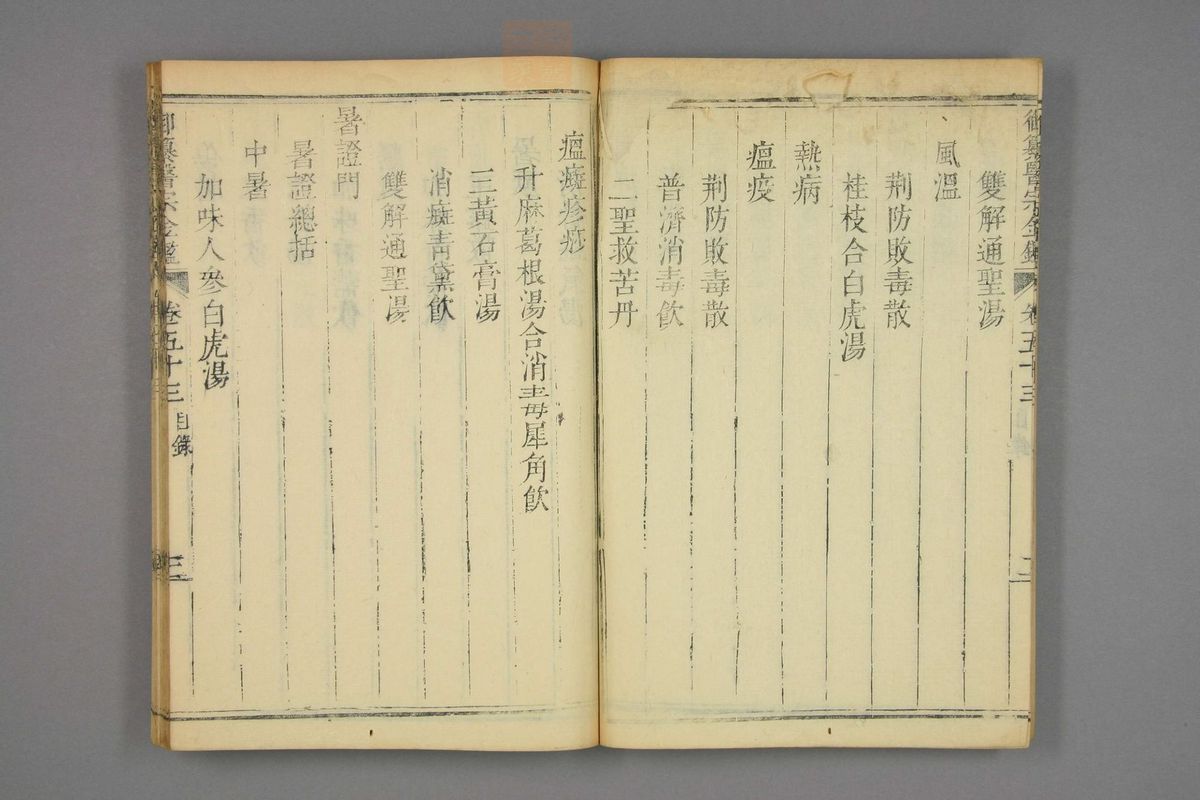 御纂醫宗金鑑 卷五十三 二
雙解通聖湯
風溫
荆防敗毒散
桂枝合白虎湯
熱病
瘟疫
荆防敗毒散
普濟消毒飲
二聖救苦丹
瘟癍疹痧
升麻葛根湯合消毒犀角飲
三黃石膏湯
消癍青黛飲
雙解通聖湯
暑證門
暑證總括
中暑
加味人參白虎湯
御纂醫宗金鑑 卷五十三 目錄 三